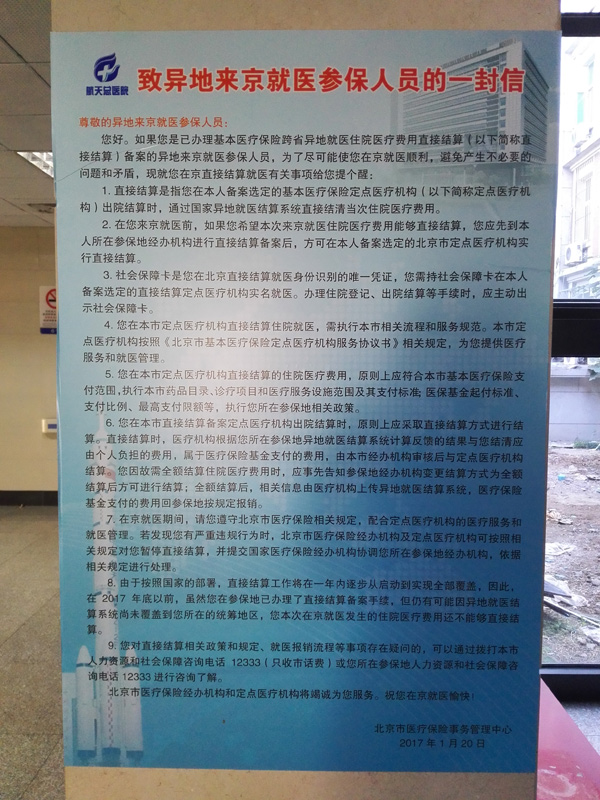 航天总医院
致异地来京就医参保人员的一封信
尊敬的异地来京就医参保人员：
您好。如果您是已办理基本医疗保险跨省异地就医住院医疗费用直接结算（以下简称直
接结算）备案的异地来京就医参保人员，为了尽可能使您在京就医顺利，避免产生不必要的
问题和矛盾，现就您在京直接结算就医有关事项给您提个醒：
1. 直接结算是指您在本人备案选定的基本医疗保险定点医疗机构（以下简称定点医疗机
构）出院结算时，通过国家异地就医结算系统直接结清当次住院医疗费用。
2. 在您来京就医前，如果您希望本次来京就医住院医疗费用能够直接结算，您应先到本
人所在参保地经办机构进行直接结算备案后，方可在本人备案选定的北京市定点医疗机构实
行直接结算。
3. 社会保障卡是您在北京直接结算就医身份识别的唯一凭证，您需持社会保障卡在本人
备案选定的直接结算定点医疗机构实名就医。办理住院登记、出院结算等手续时，应主动出
示社会保障卡。
4. 您在本市定点医疗机构直接结算住院就医，需执行本市相关流程和服务规范。本市定
点医疗机构按照《北京市基本医疗保险定点医疗机构服务协议书》相关规定，为您提供医疗
服务和就医管理。
5. 您在本市定点医疗机构直接结算的住院医疗费用，原则上应符合本市基本医疗保险支
付范围，执行本市药品目录、诊疗项目和医疗服务设施范围及其支付标准；医保基金起付标准、
支付比例、最高支付限额等，执行您所在参保地相关政策。
6. 您在本市直接结算备案定点医疗机构出院结算时，原则上应采取直接结算方式进行结
算。直接结算时，医疗机构根据您所在参保地异地就医结算系统计算反馈的结果与您结清应
由个人负担的费用，属于医疗保险基金支付的费用，由本市经办机构审核后与定点医疗机构
结算。您因故需全额结算住院医疗费用时，应事先告知参保地经办机构变更结算方式为全额
结算后方可进行结算；全额结算后，相关信息由医疗机构上传异地就医结算系统，医疗保险
基金支付的费用回参保地按规定报销。
7. 在京就医期间，请您遵守北京市医疗保险相关规定，配合定点医疗机构的医疗服务和
就医管理。若发现您有严重违规行为时，北京市医疗保险经办机构及定点医疗机构可按照相
关规定对您暂停直接结算，并提交国家医疗保险经办机构协调您所在参保地经办机构，依据
相关规定进行处理。
8. 由于按照国家的部署，直接结算工作将在一年内逐步从启动到实现全部覆盖，因此，
在 2017 年底以前，虽然您在参保地已办理了直接结算备案手续，但仍有可能因异地就医结
算系统尚未覆盖到您所在的统筹地区，您本次在京就医发生的住院医疗费用还不能够直接结
算。
9. 您对直接结算相关政策和规定、就医报销流程等事项存在疑问的，可以通过拨打本市
人力资源和社会保障咨询电话 12333（只收市话费）或您所在参保地人力资源和社会保障咨
询电话 12333 进行咨询了解。
北京市医疗保险经办机构和定点医疗机构将竭诚为您服务。祝您在京就医愉快！
北京市医疗保险事务管理中心
2017 年 1 月 20 日